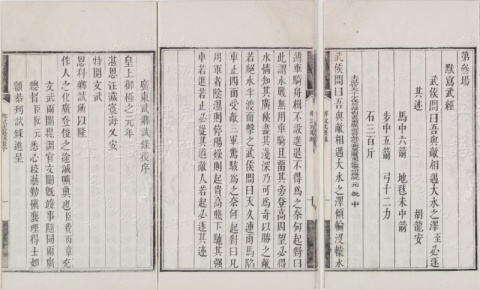 第叁場
默寫武經
武侯問曰吾與敵相遇大水之澤至必逐
其迹 胡龍安
馬中六箭 地毬未中箭
步中五箭 弓十二力
石三百斤
元 批 中
武侯問曰吾與敵相遇大水之澤傾輪沒轅水
薄車騎舟楫不設進退不得為之奈何起對曰
此謂水戰無用車騎且留其旁登高四望必得
水情知其廣狹盡其淺深乃可為奇以勝之敵
若絕水半渡而擊之武侯問曰天久連雨馬陷
車止四面受敵三軍驚駭為之奈何起對曰凡
用車者陰濕則停陽燥則起貴高賤下馳其強
車若進若止必從其道敵人若起必逐其迹
廣東武鄉試錄後序
皇上御極之元年
湛恩汪濊寰海乂安
特開文武
恩科鄉試所以隆
作人之化廣登俊之途誠曠典也臣費丙章充
文武兩闈提調官文闈竣事隨同兩廣
總督臣阮元悉心校藝勤襄理得士如
額恭列試錄進呈